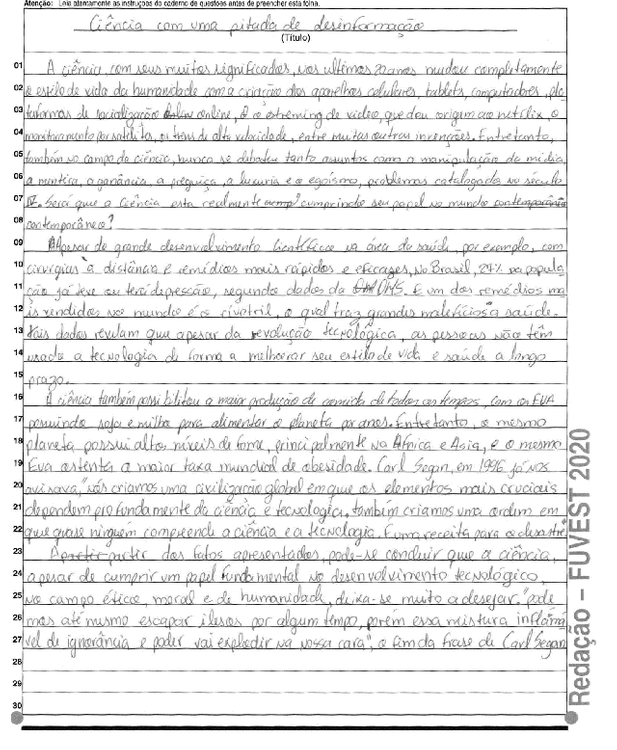 Atenção: Leia atentamente as instruções do caderno de questões antes de preencher esta folha.
Ciência com uma pitada de desinformação
(Título)
01 A ciência com seus muitos significados, nos ultimos 20 anos mudou completamente
02 o estilo de vida da humanidade com a criação dos aparelhos celulares, tablets, computadores, pla
03 taformas de socialização online, e o estreming de video, que deu origem ao netflix, o
04 monitoramento por satélite, os trens de alta velocidade, entre muitas outras invenções. Entretanto,
05 também no campo da ciência, nunca se debateu tanto asuntos como a manipulação da mídia,
06 a mentira, a ganância, a preguiça, a luxuria e o egoísmo, problemas catalogados no século
07 IV. Será que a ciência esta realmente cumprindo seu papel no mundo contemporânio
08 contemporâneo?
09 Apesar de grande desenvolvimento científico na área da saúde, por exemplo, com
10 cirurgias à distância e remédios mais rápidos e eficazes, no Brasil, 24% da popula
11 ção já teve ou terá depressão, segundo dados da OMS. E um dos remédios ma
12 is vendidos no mundo é o rivotril, o qual traz grandes malefícios a saúde.
13 Tais dados revelam que apesar da revolução tecnológica, as pessoas não têm
14 usado a tecnologia de forma a melhorar seu estilo de vida e saúde a longo
15 prazo.
16 A ciência também possibilitou a maior produção de comida de todos os tempos, com os EUA
17 possuindo soja e milho para alimentar o planeta por anos. Entretanto, o mesmo
18 planeta possui altos níveis de fome, principalmente na África e Asia, e o mesmo
19 Eua ostenta a maior taxa mundial de obesidade. Carl Segan, em 1996 já nos
20 avisava, "nós criamos uma civilização global em que os elementos mais cruciais
21 dependem profundamente da ciência e tecnologia. também criamos uma ordem em
22 que quase ninguém compreende a ciência e a tecnologia. É uma receita para o desastre.
23 A partir dos fatos apresentados, pode-se concluir que a ciência,
24 apesar de cumprir um papel fundamental no desenvolvimento tecnológico,
25 no campo ético, moral e de humanidade, deixa-se muito a desejar. "pode
26 mos até mesmo escapar ilesos por algum tempo, porém essa mistura inflamá
27 vel de ignorância e poder vai explodir na nossa cara", o fim da frase de Carl Segan
28
29
30
Redação – FUVEST 2020